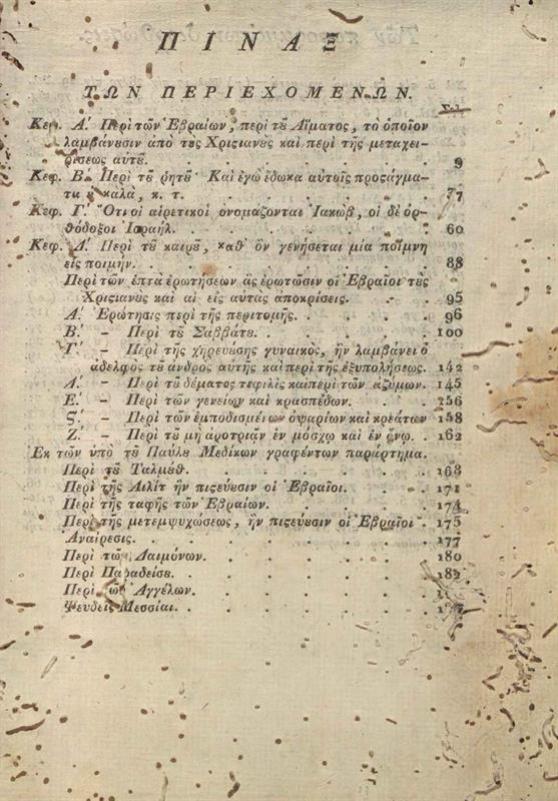 ΠΙΝΑΞ
ΤΩΝ ΠΕΡΙΕΧΟΜΕΝΩΝ.
Σελ.
Κεφ. Α.' Περὶ τῶν Ἑβραίων, περὶ τȣ͂ Αἵματος, τὸ ὁποῖον
λαμβάνȣσιν ἀπὸ τȣς Χριϛιανȣς καὶ περὶ τῆς μεταχει-
ρίσεως αὐτȣ͂. 9
Κεφ. Β. Περὶ τȣ͂ ῥητȣ͂ Καὶ ἐγὼ ἔδωκα αὐτοῖς προϛάγμα-
τα ȣ καλὰ, κ. τ. 77
Κεφ. Γ.' Ὅτι οἱ αἱρετικοὶ ὀνομάζονται Ἰακὼβ, οἱ δὲ ὀρ-
θόδοξοι Ἰσραήλ. 60
Κεφ. Δ.' Περὶ τȣ͂ καιρȣ͂, καθ' ὃν γενήσεται μία ποίμνη
εἷς ποιμήν. 88
Περὶ τῶν ἑπτὰ ἐρωτήσεων ἃς ἐρωτῶσιν οἱ Ἑβραῖοι τȣς
Χριϛιανȣς καὶ αἱ εἰς αὐτὰς ἀποκρίσεις. 95
Α.' Ἐρώτησις περὶ τῆς περιτομῆς. 96
Β.' – Περὶ τȣ͂ Σαββάτȣ. 100
Γ.' – Περὶ τῆς χηρευȣ́σης γυναικὸς, ἣν λαμβάνει ὁ
ἀδελφὸς τȣ͂ ἀνδρὸς αὐτῆς καὶ περὶ τῆς ἐξυπολήσεως. 142
Δ.' – Περὶ τȣ͂ δέματος τεφιλὶς καὶ περὶ τῶν ἀζύμων. 145
Ε.' – Περὶ τῶν γενείων καὶ κρασπέδων. 156
Ϛ.' – Περὶ τῶν ἐμποδισμένων ὀψαρίων καὶ κρεάτων 158
Ζ. – Περὶ τȣ͂ μὴ ἀροτριᾷν ἐν μόσχῳ καὶ ἐν ὄνῳ. 162
Ἐκ τῶν ὑπὸ τȣ͂ Παύλȣ Μεδίκων γραφέντων παράρτημα.
Περὶ τȣ͂ Ταλμȣ́θ. 168
Περὶ τῆς Λιλὶτ ἣν πιϛεύȣσιν οἱ Ἑβραῖοι. 171
Περὶ τῆς ταφῆς τῶν Ἑβραίων. 174
Περὶ τῆς μετεμψυχώσεως, ἣν πιϛεύȣσιν οἱ Ἑβραῖοι 175
Ἀναίρεσις. 177
Περὶ τῶν Δαιμόνων. 180
Περὶ Παραδείσȣ. 182
Περὶ τῶν Ἀγγέλων.
Ψευδεῖς Μεσσίαι.